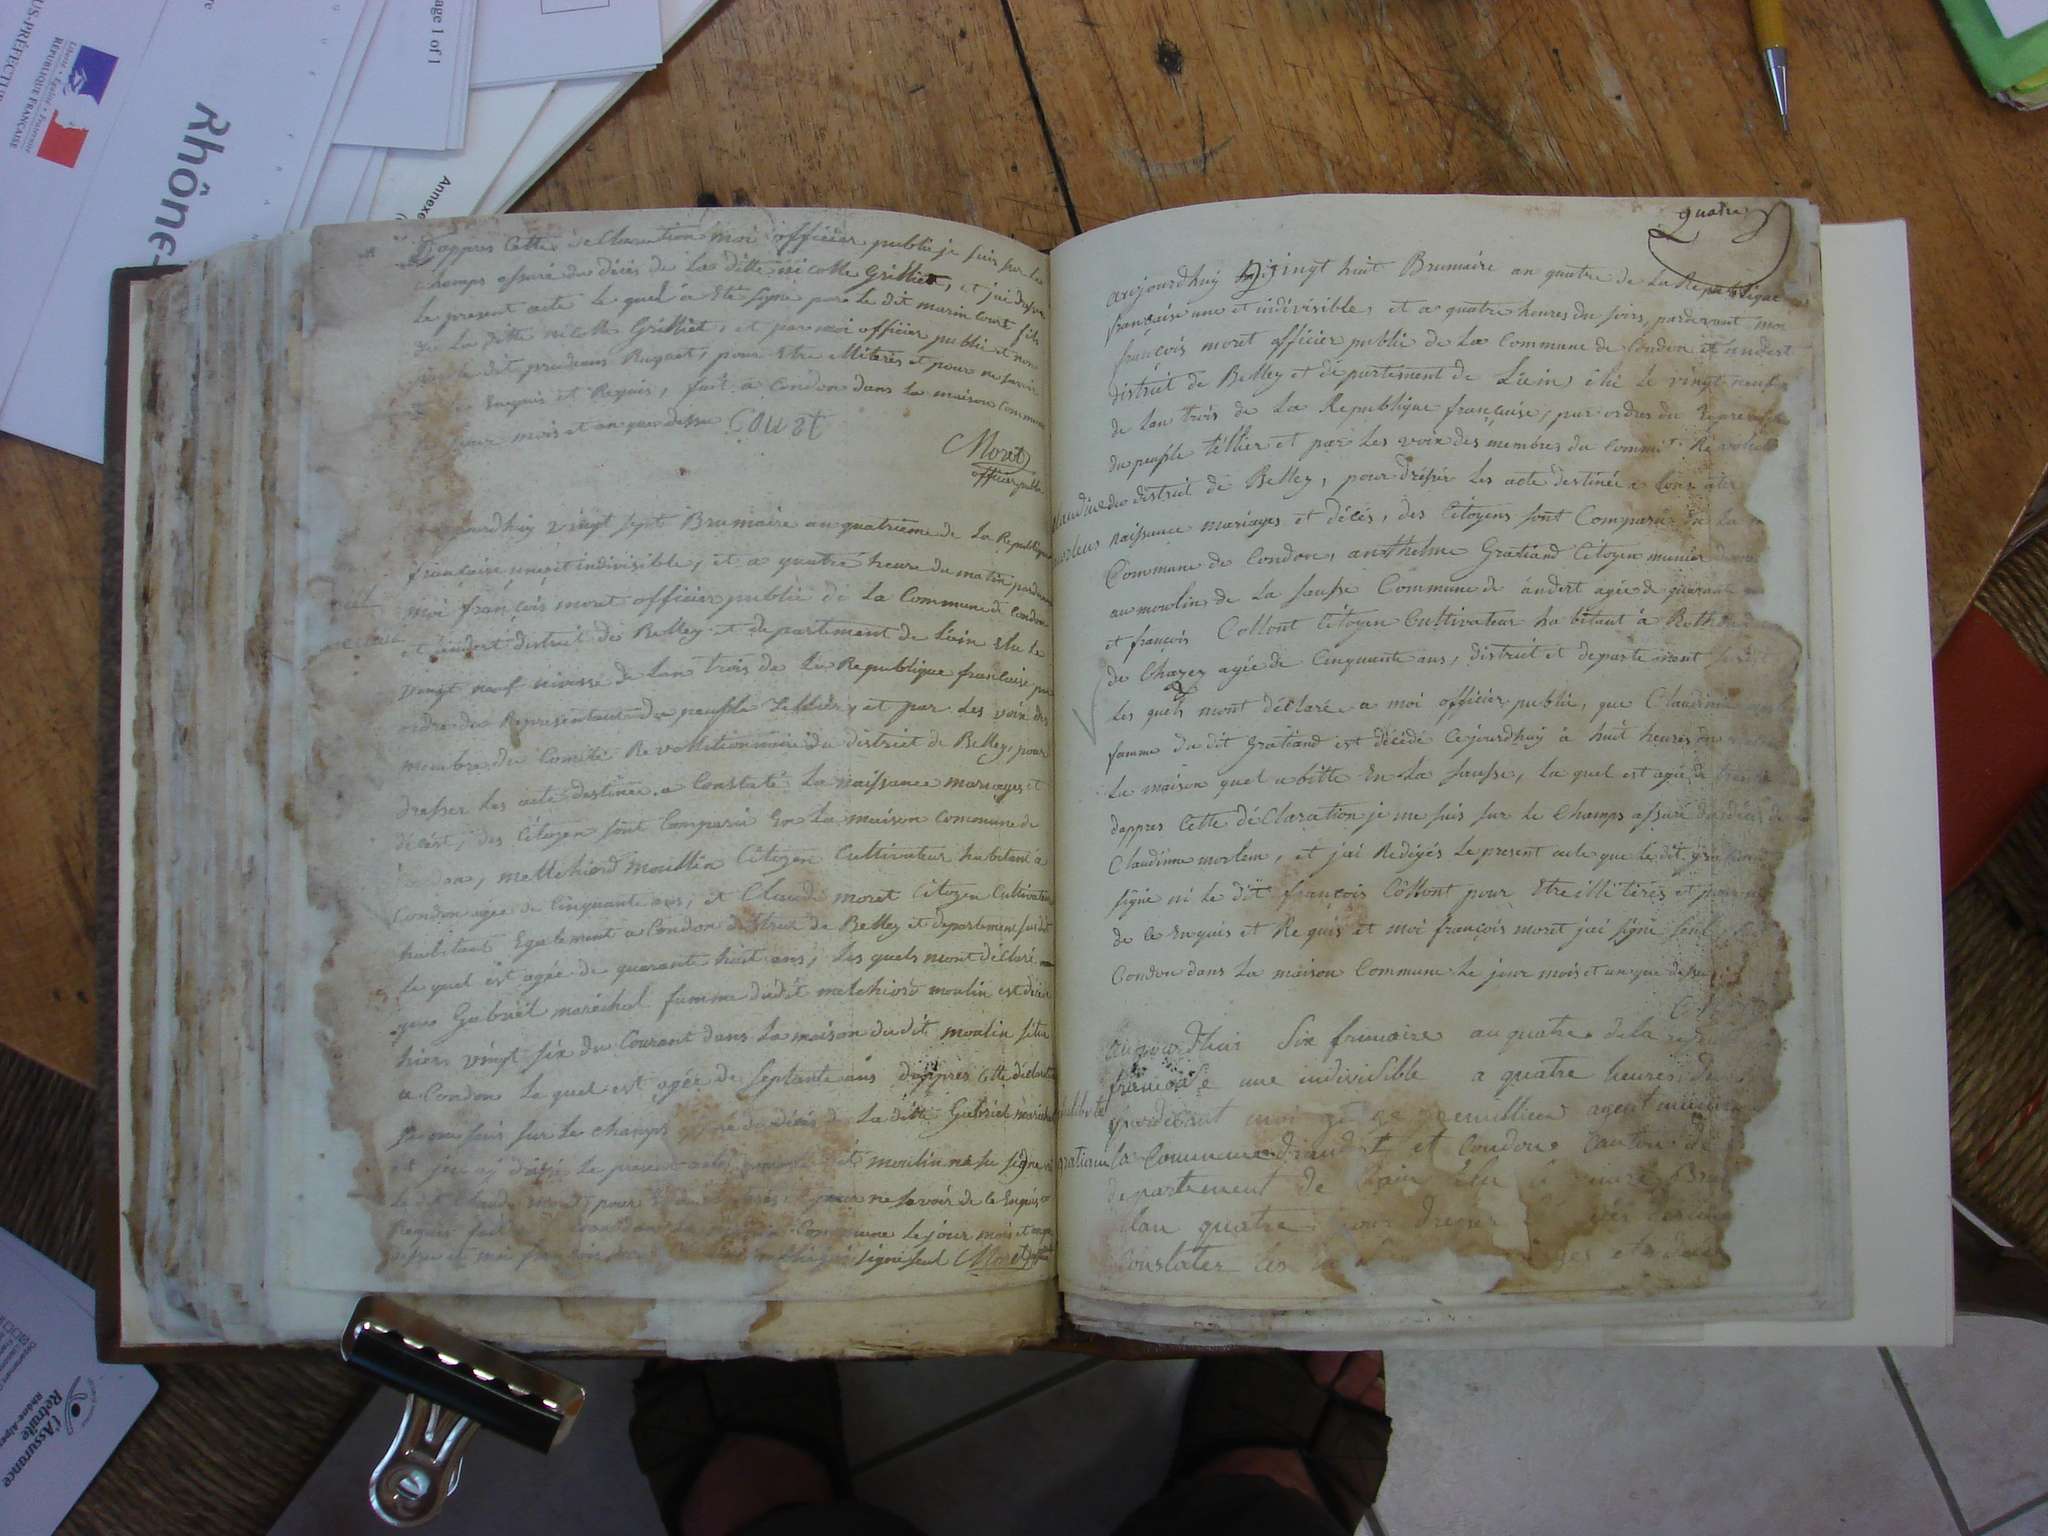 US-PRÉFECTUR
Liberté • Égalité • Fraternité
RÉPUBLIQUE FRANÇAISE
Rhône-
age 1 of 1
Annexe
D'appres Cette declaration moi officier public je suis sur le
champs assuré du décès de La ditte nicolle Grilliet, et j'ai dressé
le present acte Le quel a Eté signé par le dit marin court fils
de La ditte nicolle Grilliet, et par moi officier public et non
le dit prudens Ruquet, pour Etre illiterés et pour ne savoir
Enquis et Requis, fait a Condon dans la maison commune
jour mois et an que dessu COURT
Moret
officier public
aujourdhuy vingt sept Brumaire an quatrieme de La Republique
francaise une et indivisible, et a quatre heure du matin pardevant
moi françois moret officier public de La Commune de Condon
et andert district de Belley et departement de Lain Elu le
vingt neuf nivosse de lan trois de La Republique francaise par
ordre du Representant du peuple Tellier, et par Les voix des
membre du Comité Revolutionnaire du district de Belley, pour
dresser Les acte destinée a Constaté La naissance mariages et
décest, des Citoyen sont Comparu En La maison Commune de
Condon, mellchiord moullin Citoyen Cultivateur habitant a
Condon agée de Cinquante ans, et Claude moret Citoyen Cultivateur
habitant Egalement a Condon district de Belley et departement susdit
le quel est agée de quarant huit ans, Les quels mont déclaré
que Gabriel maréchal famme dudit melchiord moulin est décédé
hiers vingt six du Courant dans La maison du dit moulin situe
a Condon Le quel est agée de septante ans d'appres Cette declaration
je me suis sur le champs assuré du décès de La ditte Gabriel maréchal
et jen ay dressé le present acte moulin na su signé ni
Le dit Claude moret pour ne savoir de le Enquis et
Requis fait a Condon dans La maison Commune Le jour mois et an que
dessu et moi francois signé seul Moret
quatre
aujourdhuy vingt huit Brumaire an quatre de La Republique
française une et indivisible, et a quatre heures du soirs, pardevant moi
françois moret officier public de La Commune de Condon et andert
district de Belley et departement de Lain, élu Le vingt neuf
de lan trois de La Republique française, par ordre du Representant
du peuple tellier et par Les voix des membres du Commité Revolution
du district de Belley, pour dresser Les acte destinée a Constater
naissance mariages et décès, des Citoyens sont Comparu de La
Commune de Condon, anthelme Gratiand Citoyen munier
au moulin de La sausse Commune de andert agée de quarant
et françois Collont Citoyen Cultivateur habitant à Roth
de Chazey agée de Cinquante ans, district et departement susdit
Les quels mont déclaré a moi officier public, que Claudinne
famme du dit Gratiand est décédé Cejourdhuy à huit heures
La maison quel abitte En La sausse, La quel est agée de trante
dappres Cette déClaration je me suis sur le Champs assuré du décès de
Claudinne morlem, et j'ai Redigés Le present acte que Le dit gratiand
signe ni Le dit françois Collont pour Etre illiterés et pour
de Le Enquis et Requis et moi françois moret jai signé seul
Condon dans La maison Commune Le jour mois et an que dessu
aujourdhui Six frimaire an quatre de la republi
francaise une indivisible a quatre heures du
pardevant moi agent municipal
la Commune d'andert et Condon Canton de
departement de Lain Elu
lan quatre pour dresser
Constater les
l'Assurance
Retraite
Rhône-Alpes